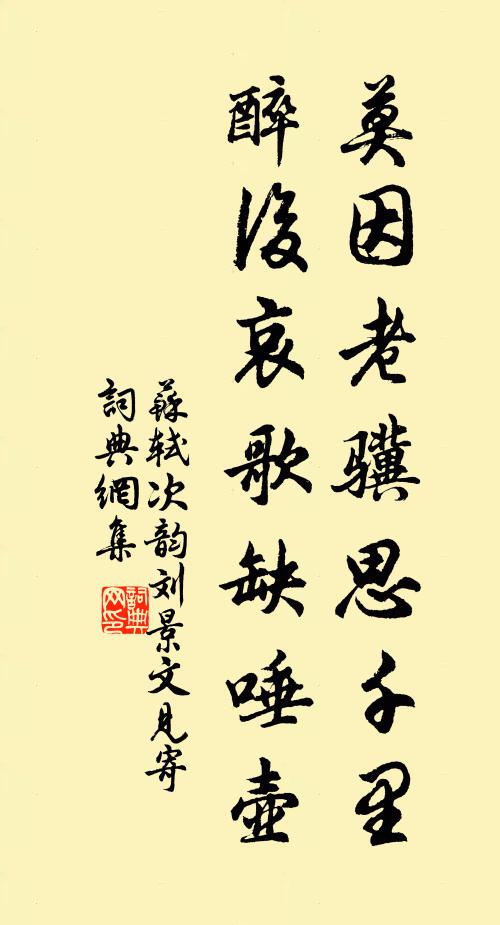 莫因老骥思千里
醉後哀歌缺唾壺
蘇軾次韵刘景文見寄
詞典網集
詞典
网印